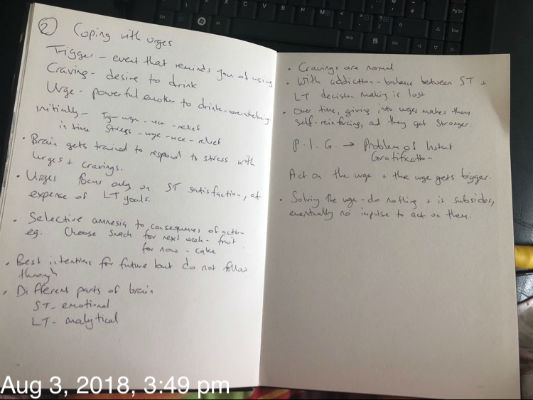 2 Coping with urges
Trigger - event that reminds you of using
Craving - desire to drink
Urge - powerful emotion to drink - overwhelming
Initially - Trig - urge - use - relief
in time Stress - urge - use - relief
• Brain gets trained to respond to stress with
urges + cravings.
• Urges focus only on ST satisfaction, at
expense of LT goals.
• Selective amnesia to consequences of action
eg. Choose snack for next week - fruit
for now - cake
• Best intentions for future but do not follow
through
• Different parts of brain
ST - emotional
LT - analytical
• Cravings are normal
• With addiction - balance between ST +
LT decision making is lost
• Over time, giving into urges makes them
self-reinforcing, and they get stronger.
P.I.G. → Problem of Instant
Gratification
Act on the urge + the urge gets bigger.
• Solving the urge - do nothing + is subsides,
eventually no impulse to act on them.
Aug 3, 2018, 3:49 pm